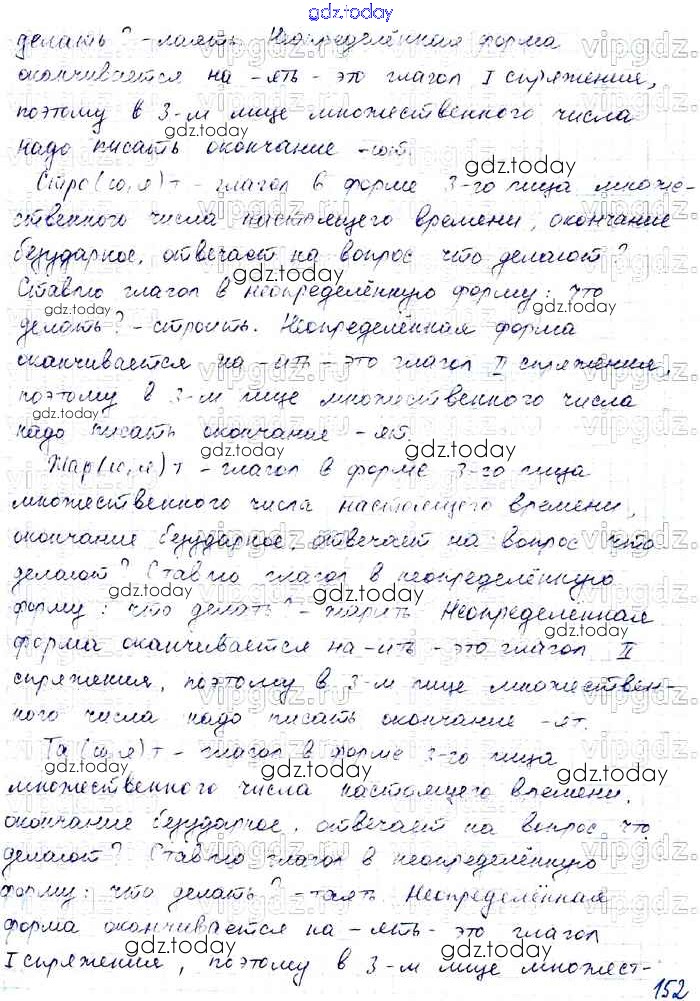 gdz.today
делать? - лаять. Неопределённая форма
оканчивается на -ять - это глагол I спряжения,
поэтому в 3-м лице множественного числа
надо писать окончание -ют.
Стро(ю,я)т - глагол в форме 3-го лица множе-
ственного числа настоящего времени, окончание
безударное, отвечает на вопрос что делают?
Ставлю глагол в неопределённую форму: что
делать? - строить. Неопределённая форма
оканчивается на -ить - это глагол II спряжения,
поэтому в 3-м лице множественного числа
надо писать окончание -ят.
Жар(ю,я)т - глагол в форме 3-го лица
множественного числа настоящего времени,
окончание безударное, отвечает на вопрос что
делают? Ставлю глагол в неопределённую
форму: что делать? - жарить. Неопределённая
форма оканчивается на -ить - это глагол II
спряжения, поэтому в 3-м лице множествен-
ного числа надо писать окончание -ят.
Та(ю,я)т - глагол в форме 3-го лица
множественного числа настоящего времени,
окончание безударное, отвечает на вопрос что
делают? Ставлю глагол в неопределённую
форму: что делать? - таять. Неопределённая
форма оканчивается на -ять - это глагол
I спряжения, поэтому в 3-м лице множест-
152